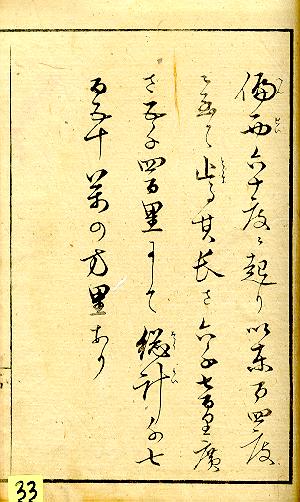 偏西六十度に起り以東百四度
に至て止る其長さ六千七百里廣
さ五千四百里にして總計千七
百五十萬の方里あり
33